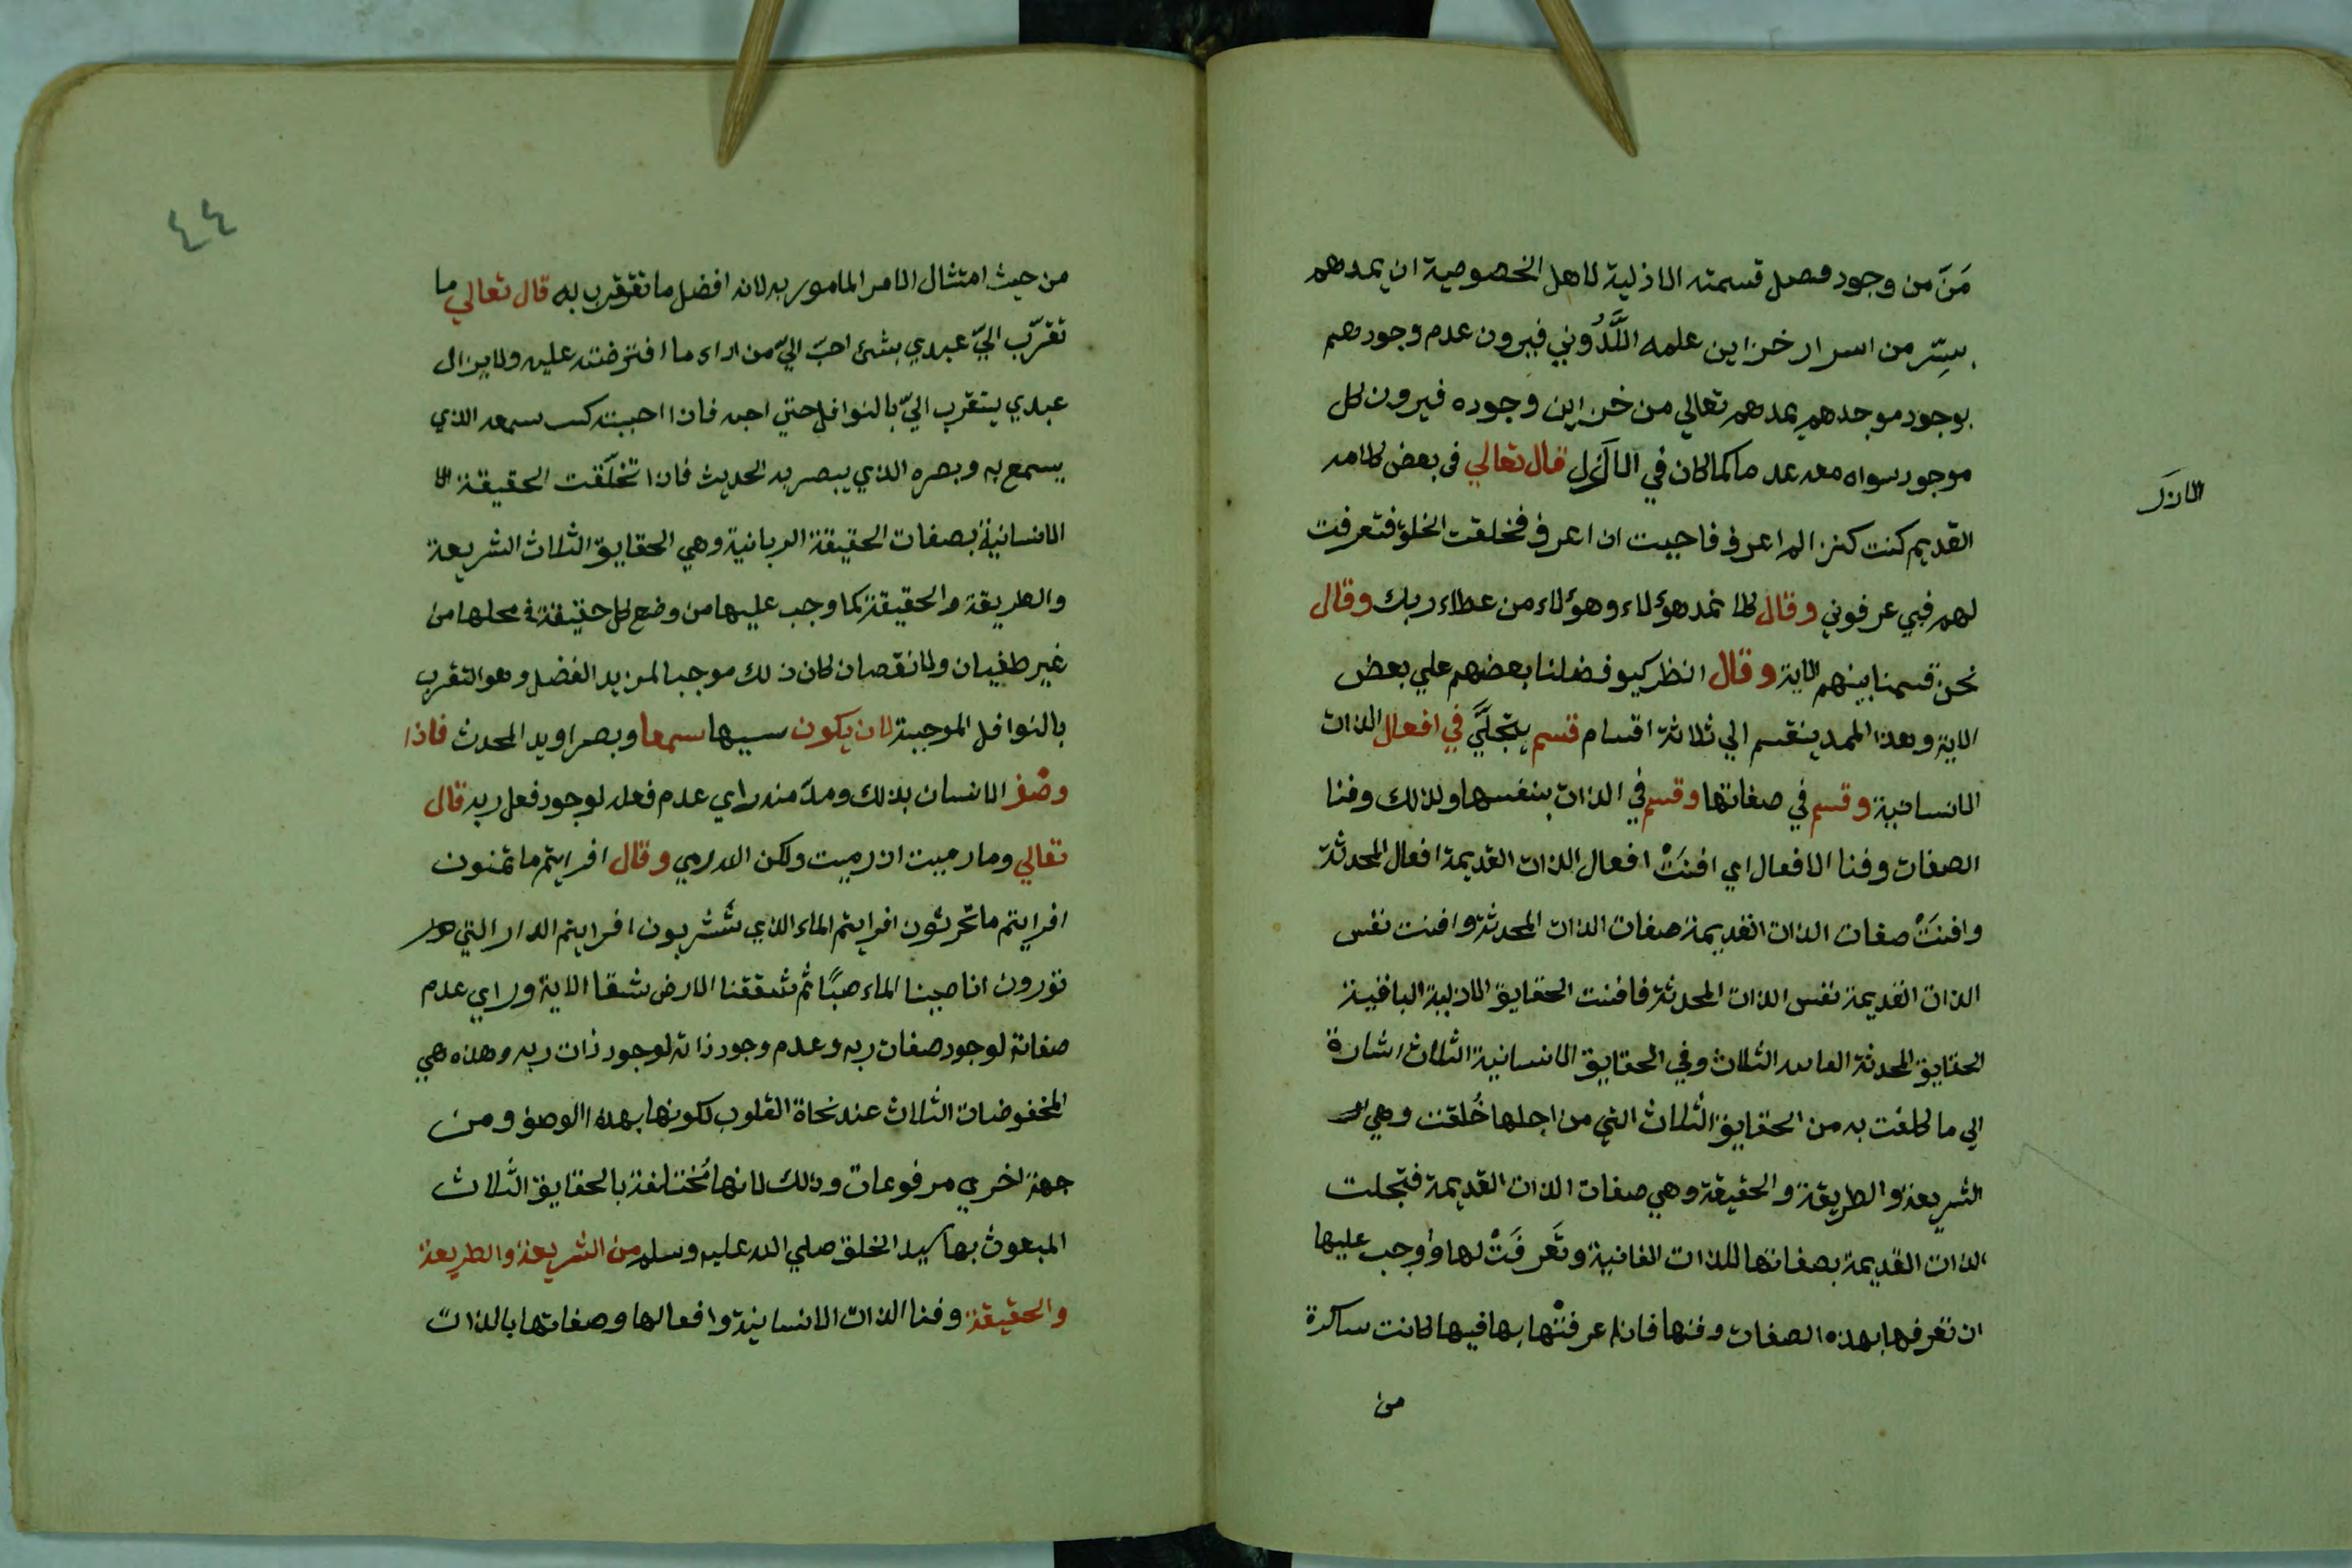 مَنَّ من وجود فصل قسمته الازلية لاهل الخصوصية ان يمدهم
بسِرّ من اسرار خزاين علمه اللَّدُوني فيرون عدم وجودهم
بوجود موجدهم يمدهم تعالي من خزاين وجوده فيرون كل
موجود سواه معه عدما كما كان في الازل قال تعالي في بعض كلامه
الازل
القديم كنت كنزا لم اعرف فاحببت ان اعرف فخلقت الخلق فتعرفت
لهم فبي عرفوني وقال كلا نمد هؤلاء وهؤلاء من عطاء ربك وقال
نحن قسمنا بينهم الاية وقال انظر كيف فضلنا بعضهم علي بعض
الاية وهذا الممد ينقسم الي ثلاثة اقسام قسم يتجلَّي في افعال الذات
الانسانية وقسم في صفاتها وقسم في الذات بنفسها ولذلك وفنا
الصفات وفنا الافعال اي افنَتْ افعال الذات القديمة افعال المحدثة
وافنَتْ صفات الذات القديمة صفات الذات المحدثة وافنت نفس
الذات القديمة نفس الذات المحدثة فافنت الحقايق الازلية الباقية
الحقايق المحدثة الثلاث وفي الحقايق الانسانية الثلاث اشارة
الي ما كلفت به من الحقايق الثلاث التي من اجلها خُلقت وهي
الشريعة والطريقة والحقيقة وهي صفات الذات القديمة فتجلت
الذات القديمة بصفاتها للذات الفانية وتَعرفَتْ لها واوجب عليها
ان تعرفها بهذه الصفات وفنها فان عرفتْها بها فيها لكانت ساكرة
من
٤٤
من حيث امتثال الامر المامور به لانه افضل ما تقترب به قال تعالي ما
تقرّب اليّ عبدي بشئ احبّ اليّ من اداء ما افترضته عليه ولا يزال
عبدي يتقرب اليّ بالنوافل حتي احبه فاذا احببته كنت سمعه الذي
يسمع به وبصره الذي يبصر به الحديث فاذا تخلّقت الحقيقة الا
الانسانية بصفات الحقيقة الربانية وهي الحقايق الثلاث الشريعة
والطريقة والحقيقة كما وجب عليها من وضع كل حقيقة في محلها من
غير طغيان ولا نقصان كان ذلك موجبا لمزيد الفضل وهو التقرب
بالنوافل الموجبة لان يكون سيبها سمعا وبصرا ويد المحدث فاذا
وصف الانسان بذلك ومدّ منه راي عدم فعله لوجود فعل ربه قال
تعالي وما رميت اذ رميت ولكن الله رمي وقال افرايتم ما تمنون
افرايتم ما تحرثون افرايتم الماء الذي تشربون افرايتم الدار التي
تورون انا صببنا الماء صبًّا ثم شققنا الارض شقا الاية وراي عدم
صفاته لوجود صفات ربه وعدم وجود ذاته لوجود ذات ربه وهذه هي
المخفوضات الثلاث عند نحاة القلوب لكونها بهذا الوصف ومن
جهة اخري مرفوعات وذلك لانها مُختلفة بالحقايق الثلاث
المبعوث بها سيد الخلق صلي الله عليه وسلم من الشريعة والطريعة
والحقيقة وفنا الذات الانسانية وافعالها وصفاتها بالذات